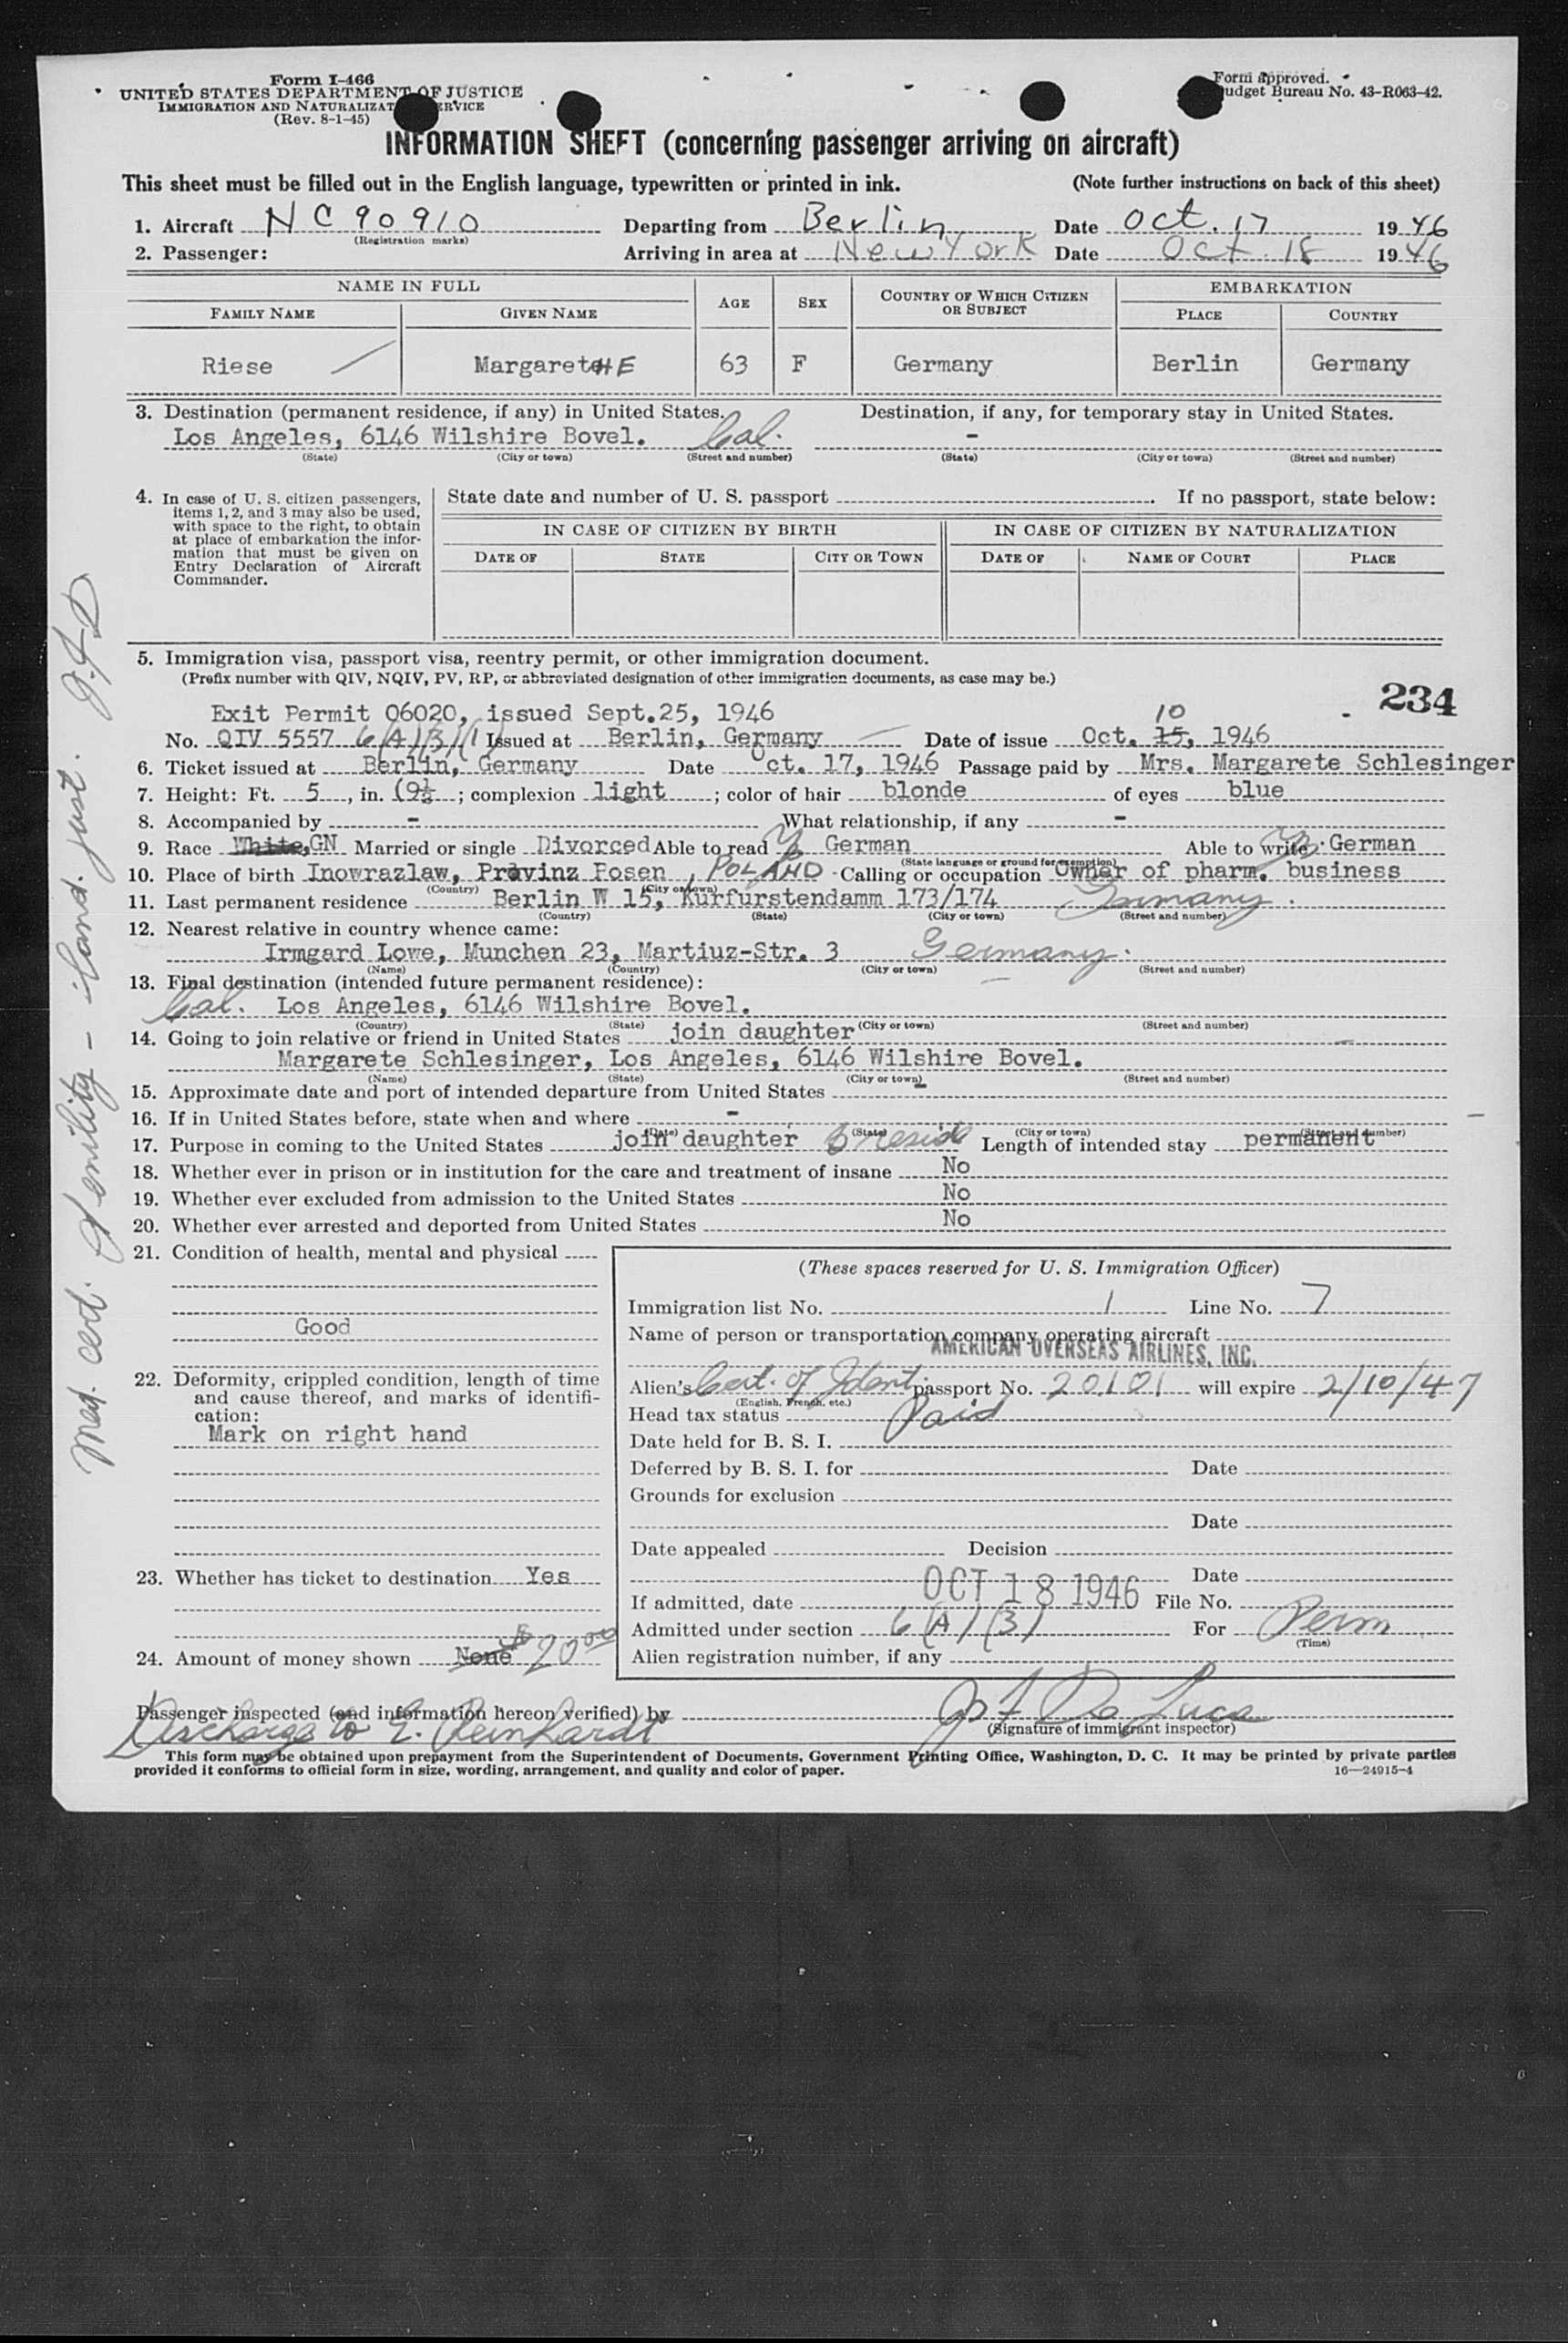 Form I-466
UNITED STATES DEPARTMENT OF JUSTICE
IMMIGRATION AND NATURALIZAT ERVICE
(Rev. 8-1-45)
Form approved.
udget Bureau No. 43-R063-42.
INFORMATION SHEET (concerning passenger arriving on aircraft)
This sheet must be filled out in the English language, typewritten or printed in ink. (Note further instructions on back of this sheet)
1. Aircraft NC90910 Departing from Berlin Date Oct. 17 1946
(Registration marks)
2. Passenger: Arriving in area at New York Date Oct. 18 1946
NAME IN FULL AGE SEX COUNTRY OF WHICH CITIZEN OR SUBJECT EMBARKATION
FAMILY NAME GIVEN NAME PLACE COUNTRY
Riese MargaretHE 63 F Germany Berlin Germany
3. Destination (permanent residence, if any) in United States. Destination, if any, for temporary stay in United States.
Los Angeles, 6146 Wilshire Bovel. Cal. -
(State) (City or town) (Street and number) (State) (City or town) (Street and number)
4. In case of U. S. citizen passengers, items 1, 2, and 3 may also be used, with space to the right, to obtain at place of embarkation the information that must be given on Entry Declaration of Aircraft Commander.
State date and number of U. S. passport . If no passport, state below:
IN CASE OF CITIZEN BY BIRTH IN CASE OF CITIZEN BY NATURALIZATION
DATE OF STATE CITY OR TOWN DATE OF NAME OF COURT PLACE
5. Immigration visa, passport visa, reentry permit, or other immigration document.
(Prefix number with QIV, NQIV, PV, RP, or abbreviated designation of other immigration documents, as case may be.)
234
Exit Permit 06020, issued Sept.25, 1946 10
No. QIV 5557 6(A)(3)(1) Issued at Berlin, Germany Date of issue Oct. 15, 1946
6. Ticket issued at Berlin, Germany Date Oct. 17, 1946 Passage paid by Mrs. Margarete Schlesinger
7. Height: Ft. 5, in. (9½; complexion light; color of hair blonde of eyes blue
8. Accompanied by - What relationship, if any -
9. Race White, GN Married or single Divorced Able to read German Able to write German
(State language or ground for exemption)
10. Place of birth Inowrazlaw, Provinz Posen, POLAND Calling or occupation Owner of pharm. business
(Country) (City or town)
11. Last permanent residence Berlin W 15, Kurfurstendamm 173/174 Germany.
(Country) (State) (City or town) (Street and number)
12. Nearest relative in country whence came:
Irmgard Lowe, Munchen 23, Martiuz-Str. 3 Germany.
(Name) (Country) (City or town) (Street and number)
13. Final destination (intended future permanent residence):
Cal. Los Angeles, 6146 Wilshire Bovel.
(Country) (State) (City or town) (Street and number)
14. Going to join relative or friend in United States join daughter
Margarete Schlesinger, Los Angeles, 6146 Wilshire Bovel.
(Name) (State) (City or town) (Street and number)
15. Approximate date and port of intended departure from United States -
16. If in United States before, state when and where -
(Date) (State) (City or town) (Street and number)
17. Purpose in coming to the United States join daughter to reside Length of intended stay permanent
18. Whether ever in prison or in institution for the care and treatment of insane No
19. Whether ever excluded from admission to the United States No
20. Whether ever arrested and deported from United States No
21. Condition of health, mental and physical
Good
22. Deformity, crippled condition, length of time and cause thereof, and marks of identification:
Mark on right hand
23. Whether has ticket to destination Yes
24. Amount of money shown None $20 00
(These spaces reserved for U. S. Immigration Officer)
Immigration list No. 1 Line No. 7
Name of person or transportation company operating aircraft
AMERICAN OVERSEAS AIRLINES, INC.
Alien's Cert. of Ident passport No. 20101 will expire 2/10/47
(English, French, etc.)
Head tax status Paid
Date held for B. S. I.
Deferred by B. S. I. for Date
Grounds for exclusion
Date
Date appealed Decision
Date
If admitted, date OCT 18 1946 File No.
Admitted under section 6(A)(3) For Perm
(Time)
Alien registration number, if any
Passenger inspected (and information hereon verified) by J F De Luca
(Signature of immigrant inspector)
Discharge to E. Reinhardt
This form may be obtained upon prepayment from the Superintendent of Documents, Government Printing Office, Washington, D. C. It may be printed by private parties
provided it conforms to official form in size, wording, arrangement, and quality and color of paper. 16—24915-4
Med. cert. Senility